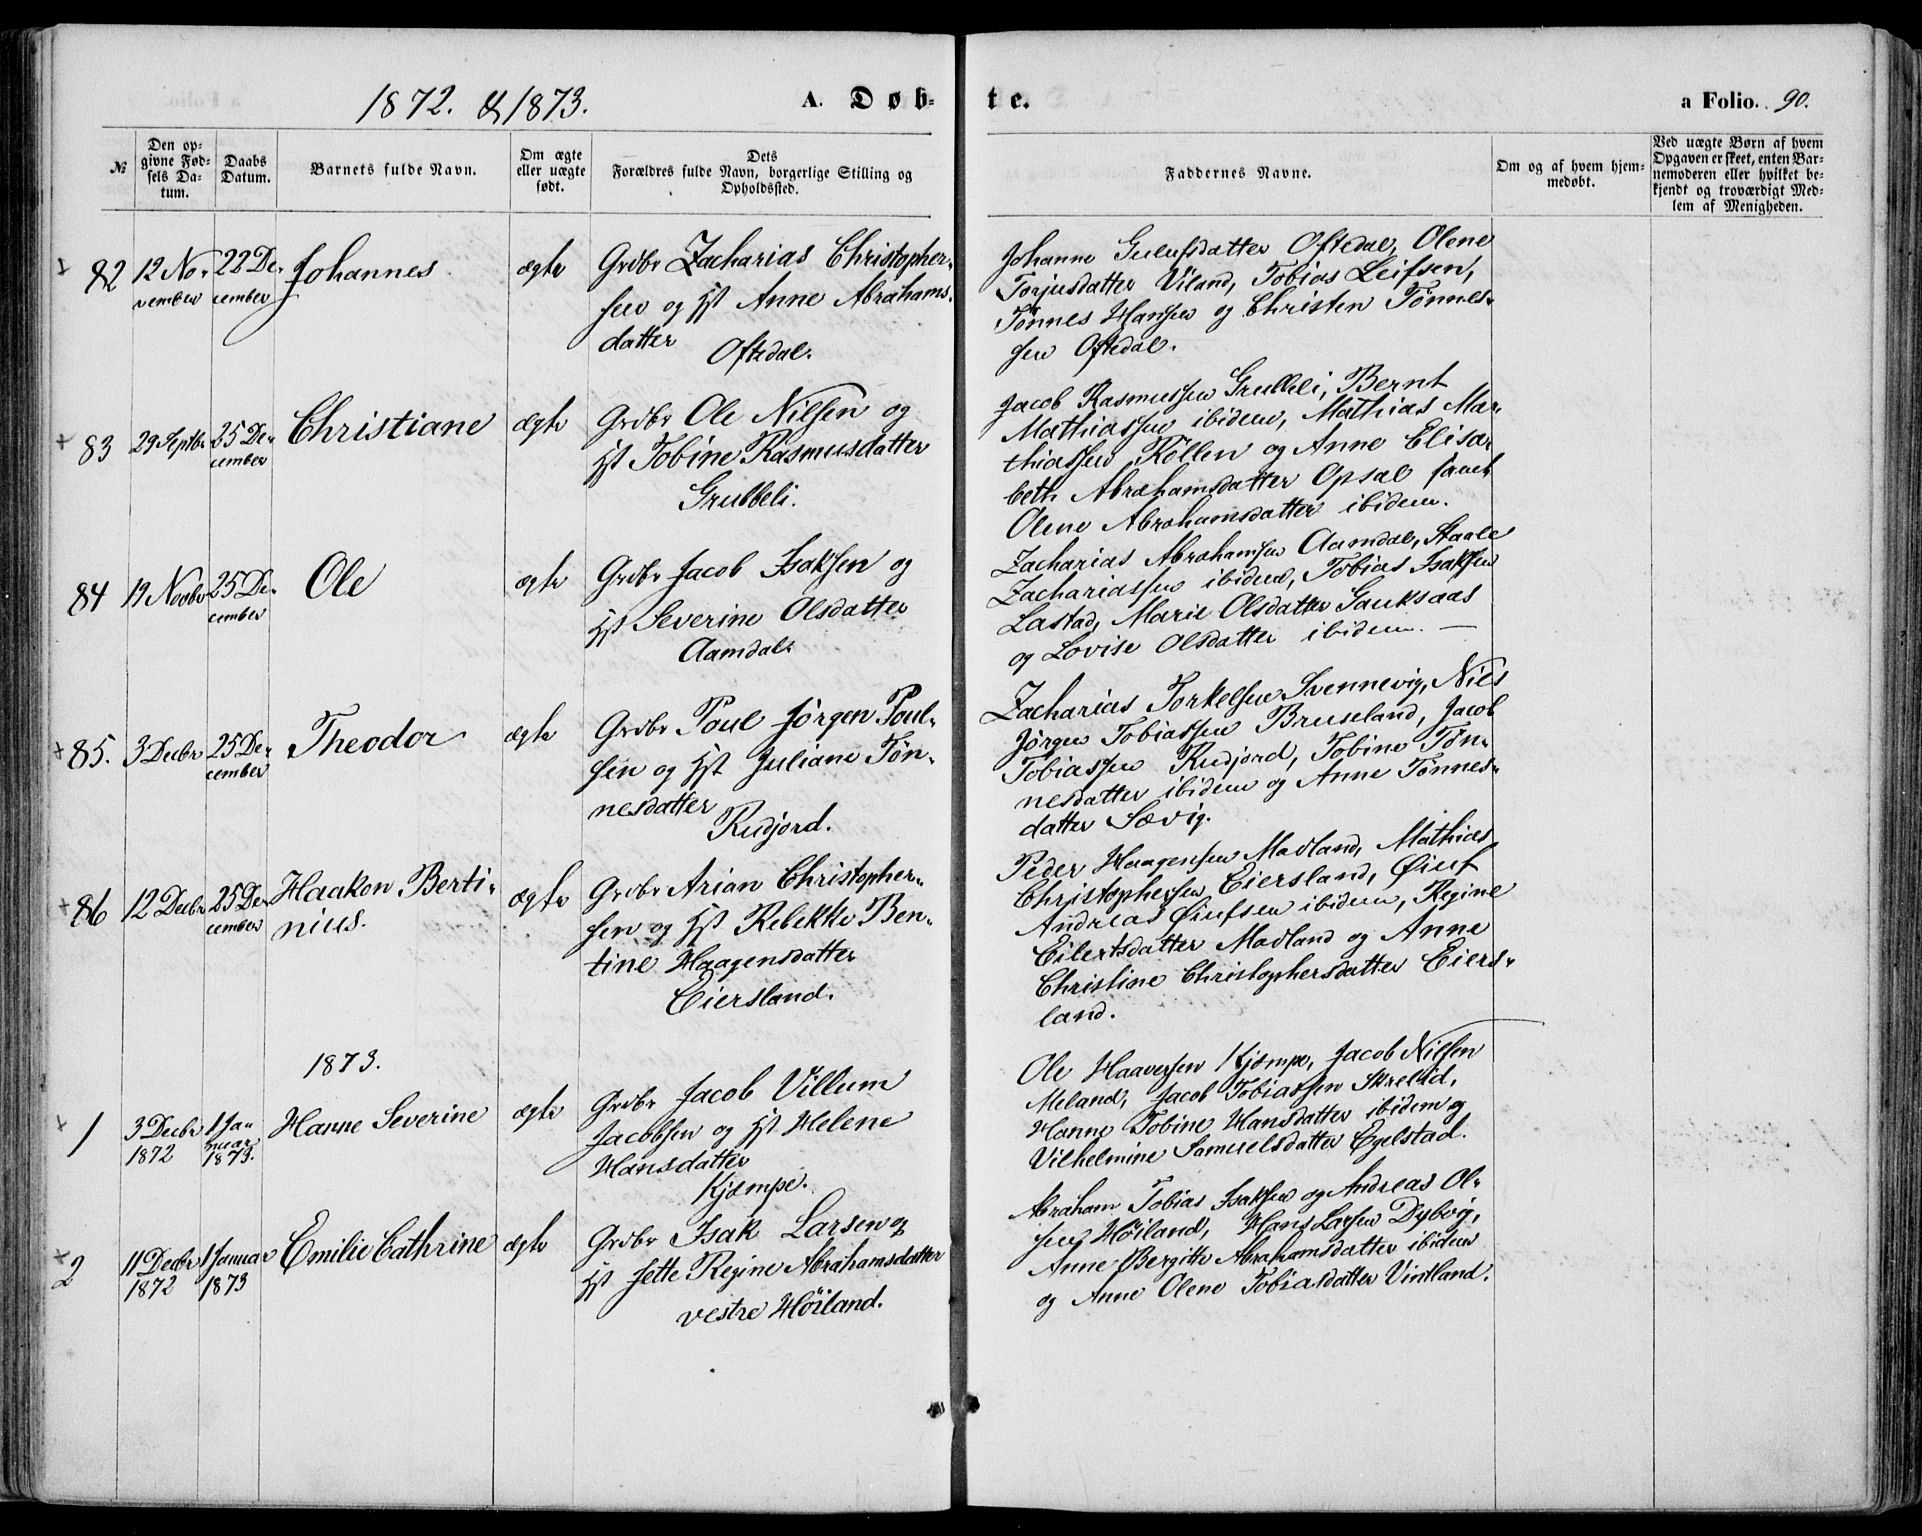 1872. & 1873.
A. Døb-
te.
a Folio. 90.
№
Den op-
givne Fød-
sels Da-
tum.
Daabs
Datum.
Barnets fulde Navn.
Om ægte
eller uægte
født.
Dets
Forældres fulde Navn, borgerlige Stilling og
Opholdssted.
Faddernes Navne.
Om og af hvem hjem-
medøbt.
Ved uægte Børn af hvem
Opgaven er skeet, enten Bar-
nemoderen eller hvilket be-
kjendt og troværdigt Med-
lem af Menigheden.
82
12 No-
vember
22 De-
cember
Johannes
ægte
Grdbr Zacharias Christopher-
sen og Hst Anne Abrahams-
datter
Oftedal.
Johanne Gulufsdatter Oftedal, Olene
Torjusdatter Viland, Tobias Leifsen,
Tønnes Hansen og Christen Tønnes-
sen Oftedal.
83
29 Septbr
25 De-
cember
Christiane
ægte
Grdbr Ole Nilsen og
Hst Tobine Rasmusdatter
Grubbeli.
Jacob Rasmussen Grubbeli, Bernt
Mathiassen ibidem, Mathias Ma-
thiassen Röllen og Anne Elisa-
beth Abrahamsdatter Opsal samt
Olene Abrahamsdatter ibidem.
84
19 Novbr
25 De-
cember
Ole
ægte
Grdbr Jacob Isaksen og
Hst Severine Olsdatter
Aamdal.
Zacharias Abrahamsen Aamdal, Staale
Zachariassen ibidem, Tobias Isaksen
Lastad, Marie Olsdatter Gauksaas
og Lovise Olsdatter ibidem. —
85.
3 Decbr
25 De-
cember
Theodor
ægte
Grdbr Poul Jørgen Poul-
sen og Hst Juliane Tøn-
nesdatter
Rudjord.
Zacharias Torkelsen Svennevig, Niels
Jørgen Tobiassen Bruseland, Jacob
Tobiassen Rudjord, Tobine Tøn-
nesdatter ibidem og Anne Tønnes-
datter Sævig.
86
12 Decbr
25 De-
cember
Haakon Berti-
nius.
ægte
Grdbr Arian Christopher-
sen og Hst Rebekke Ben-
tine Haagensdatter
Eiersland.
Peder Haagensen Madland, Mathias
Christophersen Eiersland, Øiuf
Andreas Øiufsen ibidem, Regine
Eilertsdatter Madland og Anne
Christine Christophersdatter Eiers-
land.
1873.
1
3 Decbr
1872
1 Ja-
nuar
1873.
Hanne Severine
ægte
Grdbr Jacob Villum
Jacobsen og Hst Helene
Hansdatter
Kjæmpe.
Ole Haaversen Kjæmpe, Jacob Nilsen
Meland, Jacob Tobiassen Skrelid,
Hanne Tobine Hansdatter ibidem og
Vilhelmine Samuelsdatter Egelstad.
2
11 Decbr
1872
1 Januar
1873
Emilie Cathrine
ægte
Grdbr Isak Larsen og
Hst Jette Regine Abrahamsdatter
vestre Höiland.
Abraham Tobias Isaksen og Andreas Ol-
sen Höiland, Hans Larsen Dybvig,
Anne Bergitte Abrahamsdatter ibidem
og Anne Olene Tobiasdatter Vintland.